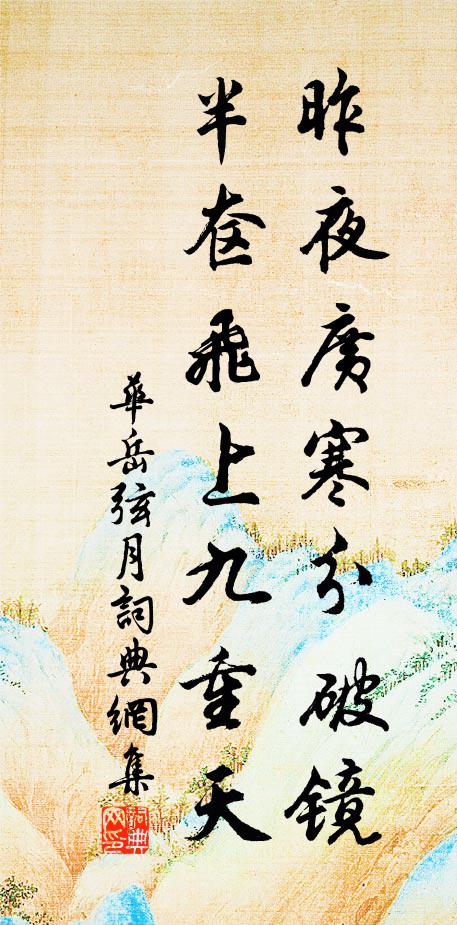 昨夜廣寒分破镜
半奁飛上九重天
華岳弦月詞典網集
詞典
网印